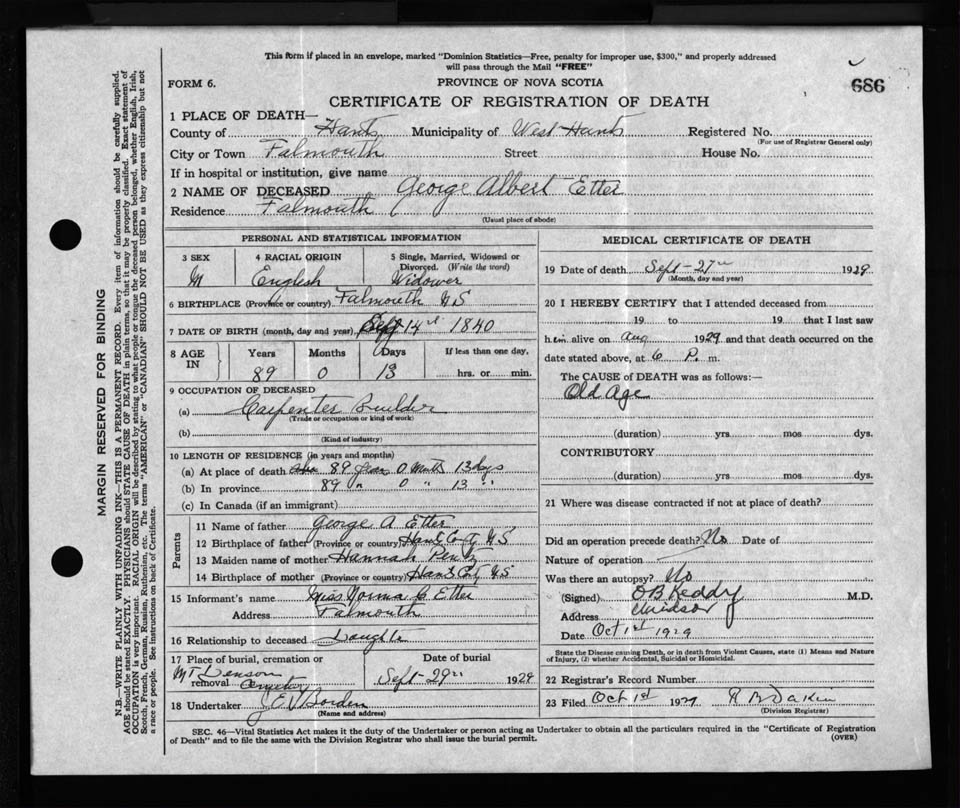 This form if placed in an envelope, marked "Dominion Statistics—Free, penalty for improper use, $300," and properly addressed
will pass through the Mail "FREE"
686
FORM 6.
PROVINCE OF NOVA SCOTIA
CERTIFICATE OF REGISTRATION OF DEATH
1 PLACE OF DEATH—
County of Hants Municipality of West Hants Registered No.
(For use of Registrar General only)
City or Town Falmouth Street House No.
If in hospital or institution, give name
2 NAME OF DECEASED George Albert Etter
Residence Falmouth
(Usual place of abode)
PERSONAL AND STATISTICAL INFORMATION
3 SEX 4 RACIAL ORIGIN 5 Single, Married, Widowed or
Divorced. (Write the word)
M English Widower
6 BIRTHPLACE (Province or country) Falmouth N S
7 DATE OF BIRTH (month, day and year) Sept 14th 1840
8 AGE IN Years Months Days If less than one day.
89 0 13 hrs. or min.
9 OCCUPATION OF DECEASED
(a) Carpenter Builder
(Trade or occupation or kind of work)
(b)
(Kind of industry)
10 LENGTH OF RESIDENCE (in years and months)
(a) At place of death 89 years 0 Mnths 13 dys
(b) In province 89 " 0 " 13 "
(c) In Canada (if an immigrant)
Parents
11 Name of father George A Etter
12 Birthplace of father (Province or country) Hants Co'ty N S
13 Maiden name of mother Hannah Pentz
14 Birthplace of mother (Province or country) Hants Co'ty N S
15 Informant's name Miss Norma C Etter
Address Falmouth
16 Relationship to deceased Daughter
17 Place of burial, cremation or Date of burial
Mt Denson
removal Cemetery Sept 29th 1929
18 Undertaker J E Borden
(Name and address)
MEDICAL CERTIFICATE OF DEATH
19 Date of death Sept 27th 1929
(Month, day and year)
20 I HEREBY CERTIFY that I attended deceased from
19 to 19 that I last saw
him alive on Aug 1929 and that death occurred on the
date stated above, at 6 P. m.
The CAUSE OF DEATH was as follows:—
Old Age
(duration) yrs mos dys.
CONTRIBUTORY
(duration) yrs mos dys.
21 Where was disease contracted if not at place of death?
Did an operation precede death? No Date of
Nature of operation
Was there an autopsy? No
(Signed) O B Keddy M.D.
Address Windsor
Date Oct 1st 1929
State the Disease causing Death, or in death from Violent Causes, state (1) Means and Nature
of Injury, (2) whether Accidental, Suicidal or Homicidal.
22 Registrar's Record Number
23 Filed Oct 1st 1929 R B Dakin
(Division Registrar)
SEC. 46—Vital Statistics Act makes it the duty of the Undertaker or person acting as Undertaker to obtain all the particulars required in the "Certificate of Registration
of Death" and to file the same with the Division Registrar who shall issue the burial permit.
(OVER)
MARGIN RESERVED FOR BINDING
N.B.—WRITE PLAINLY WITH UNFADING INK—THIS IS A PERMANENT RECORD. Every item of information should be carefully supplied.
AGE should be stated EXACTLY. PHYSICIANS should STATE CAUSE OF DEATH in plain terms, so that it may be properly classified. Exact statement of
OCCUPATION is very important. RACIAL ORIGIN will be described by stating to what people or tongue the deceased person belonged, whether English, Irish,
Scotch, French, German, Russian, Ruthenian, etc. The terms "AMERICAN" or "CANADIAN" SHOULD NOT BE USED as they express citizenship but not
a race or people. See instructions on back of Certificate.